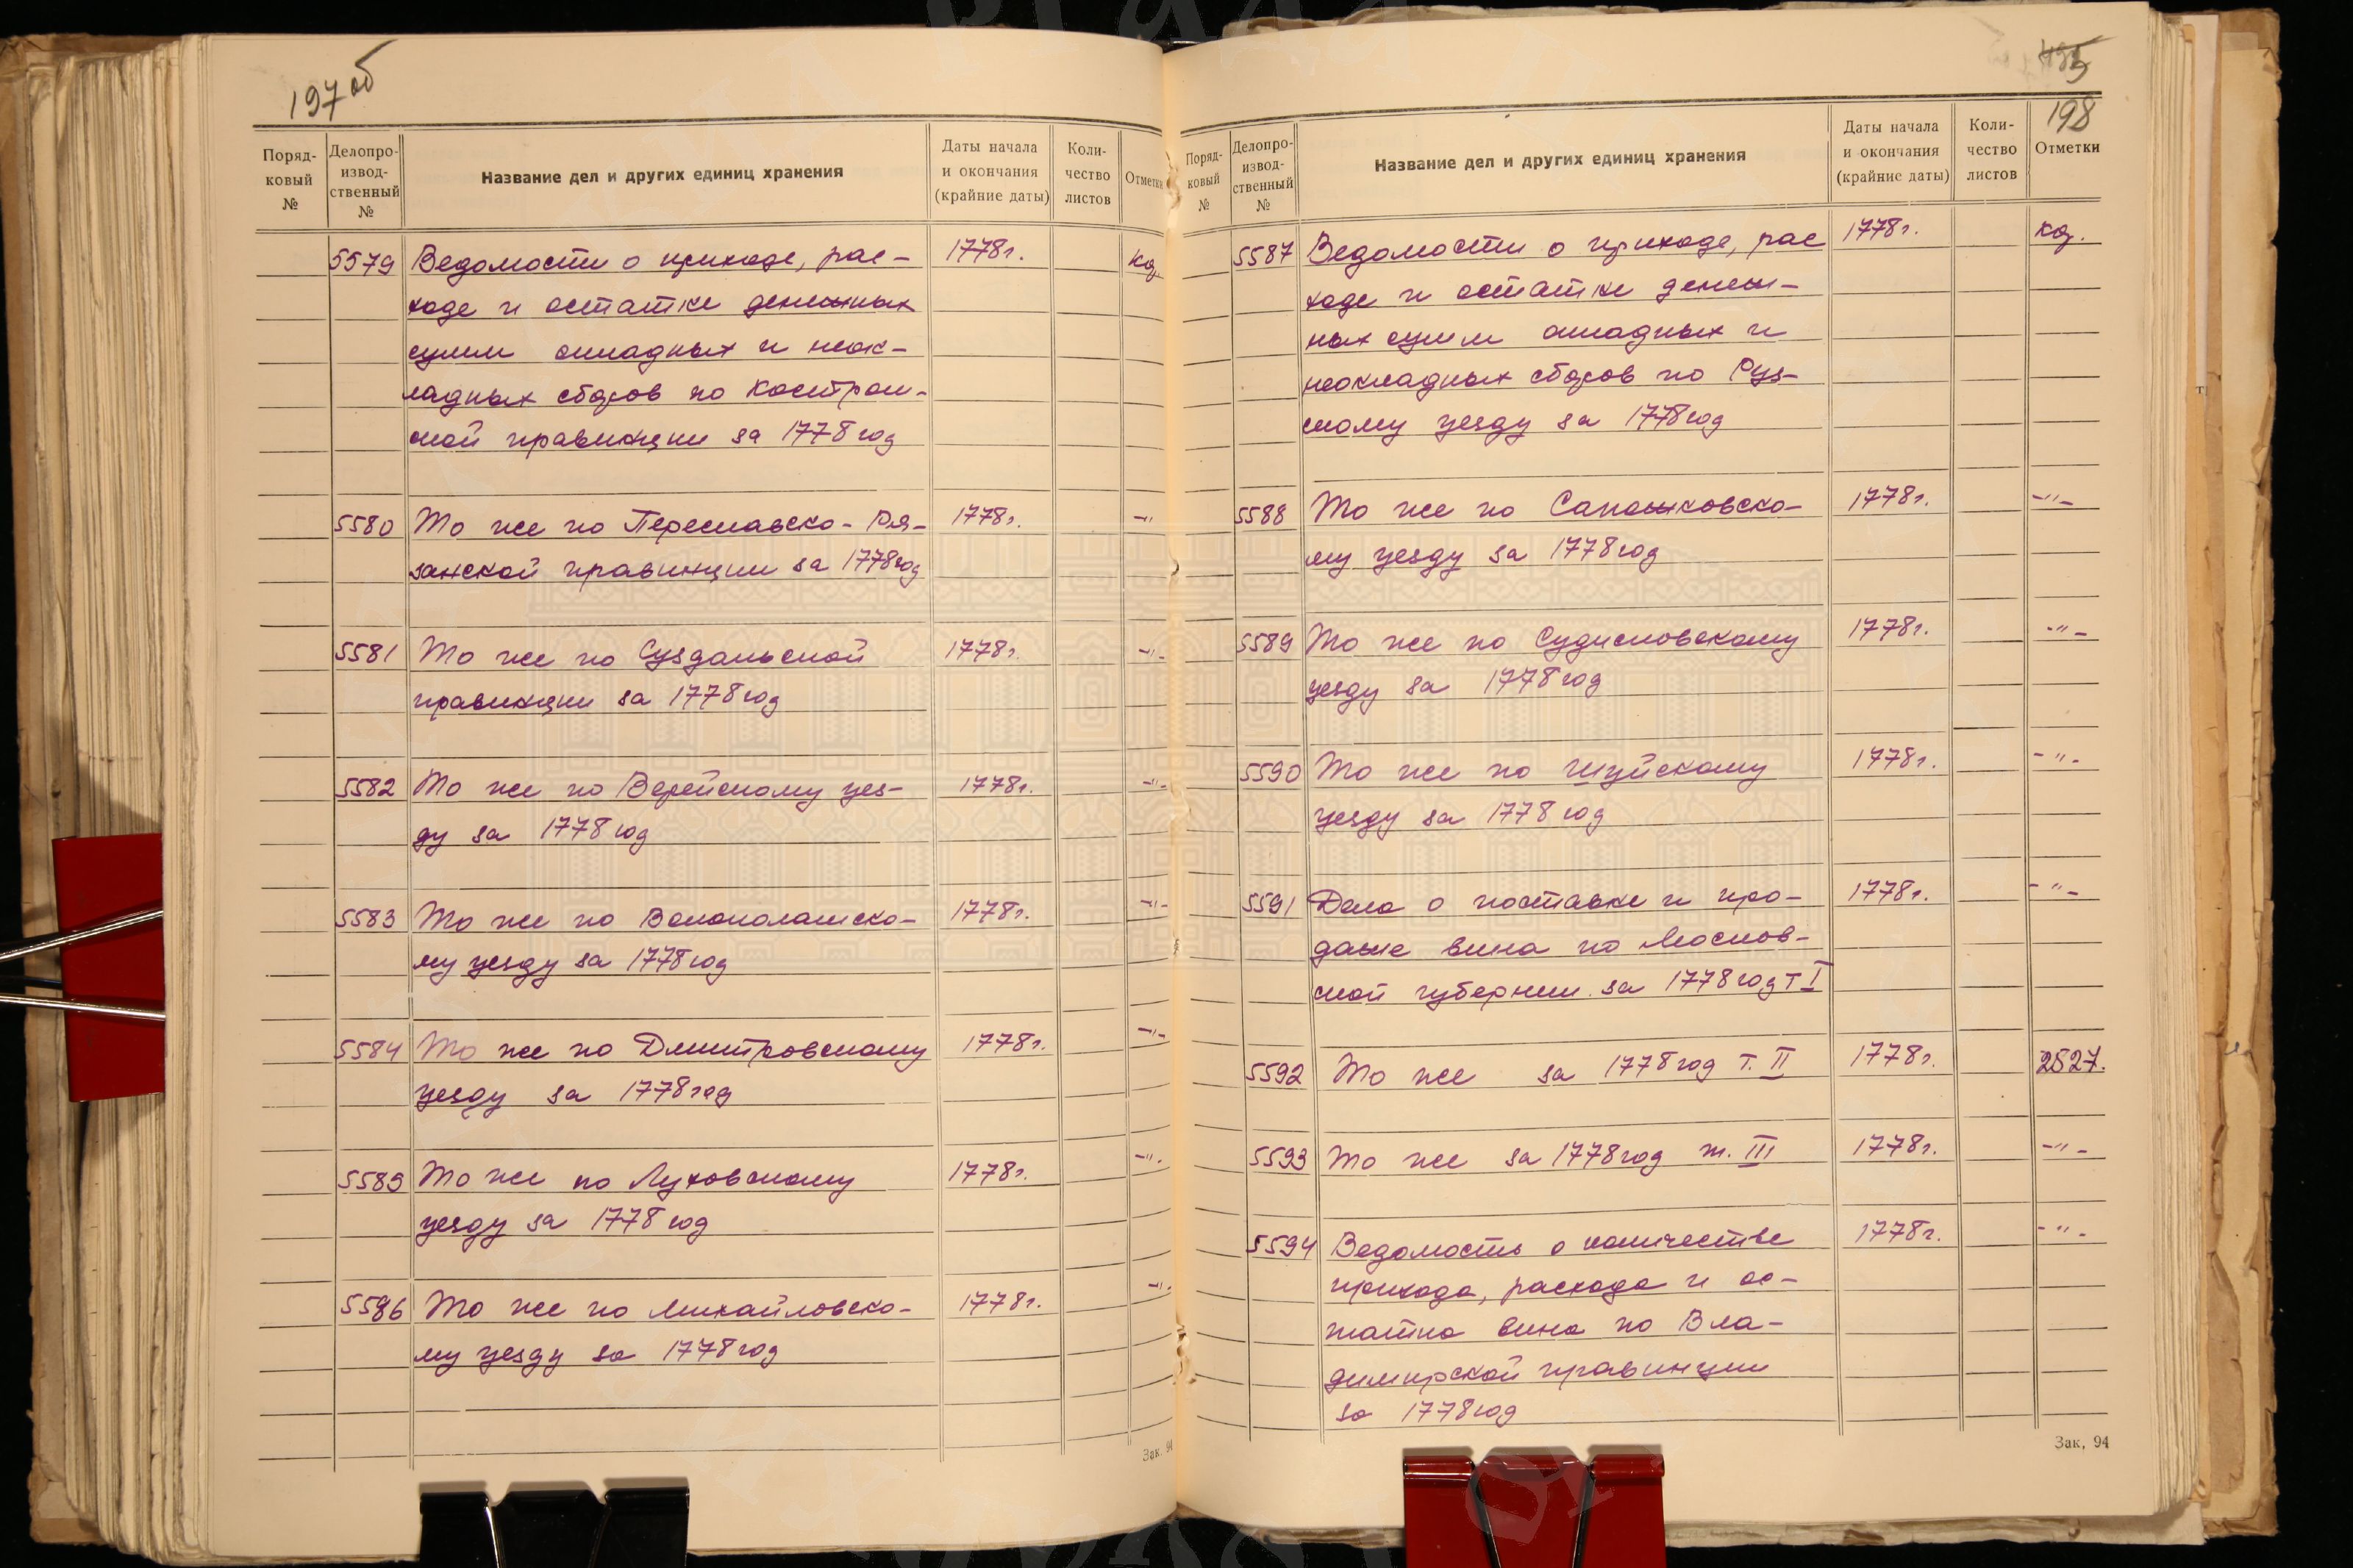 197об
Поряд-
ковый
№
Делопро-
извод-
ственный
№
Название дел и других единиц хранения
Даты начала
и окончания
(крайние даты)
Коли-
чество
листов
Отметки
5579 Ведомости о приходе, рас- 1778г. код
ходе и остатке денежных
сумм окладных и неок-
ладных сборов по Костром-
ской правинции за 1778 год
5580 То же по Переславско-Ря- 1778г. -"-
занской правинции за 1778 год
5581 То же по Суздальской 1778г. -"-
правинции за 1778 год
5582 То же по Верейскому уез- 1778г. -"-
ду за 1778 год
5583 То же по Волоколамско- 1778г. -"-
му уезду за 1778 год
5584 То же по Дмитровскому 1778г. -"-
уезду за 1778 год
5585 То же по Луховскому 1778г. -"-
уезду за 1778 год
5586 То же по Михайловско- 1778г. -"-
му уезду за 1778 год
Зак. 94
198
Поряд-
ковый
№
Делопро-
извод-
ственный
№
Название дел и других единиц хранения
Даты начала
и окончания
(крайние даты)
Коли-
чество
листов
Отметки
5587 Ведомости о приходе, рас 1778г. код.
ходе и остатке денеж-
ных сумм окладных и
неокладных сборов по Руз-
скому уезду за 1778 год
5588 То же по Сапожковско- 1778г. -"-
му уезду за 1778 год
5589 То же по Судисловскому 1778г. -"-
уезду за 1778 год
5590 То же по Шуйскому 1778г. -"-
уезду за 1778 год
5591 Дело о поставке и про- 1778г. -"-
даже вина по Москов-
ской губернии за 1778 год т I
5592 То же за 1778 год т. II 1778г. 2527.
5593 То же за 1778 год т. III 1778г. -"-
5594 Ведомость о количестве 1778г. -"-
прихода, расхода и ос-
татка вина по Вла-
димирской правинции
за 1778 год
Зак, 94